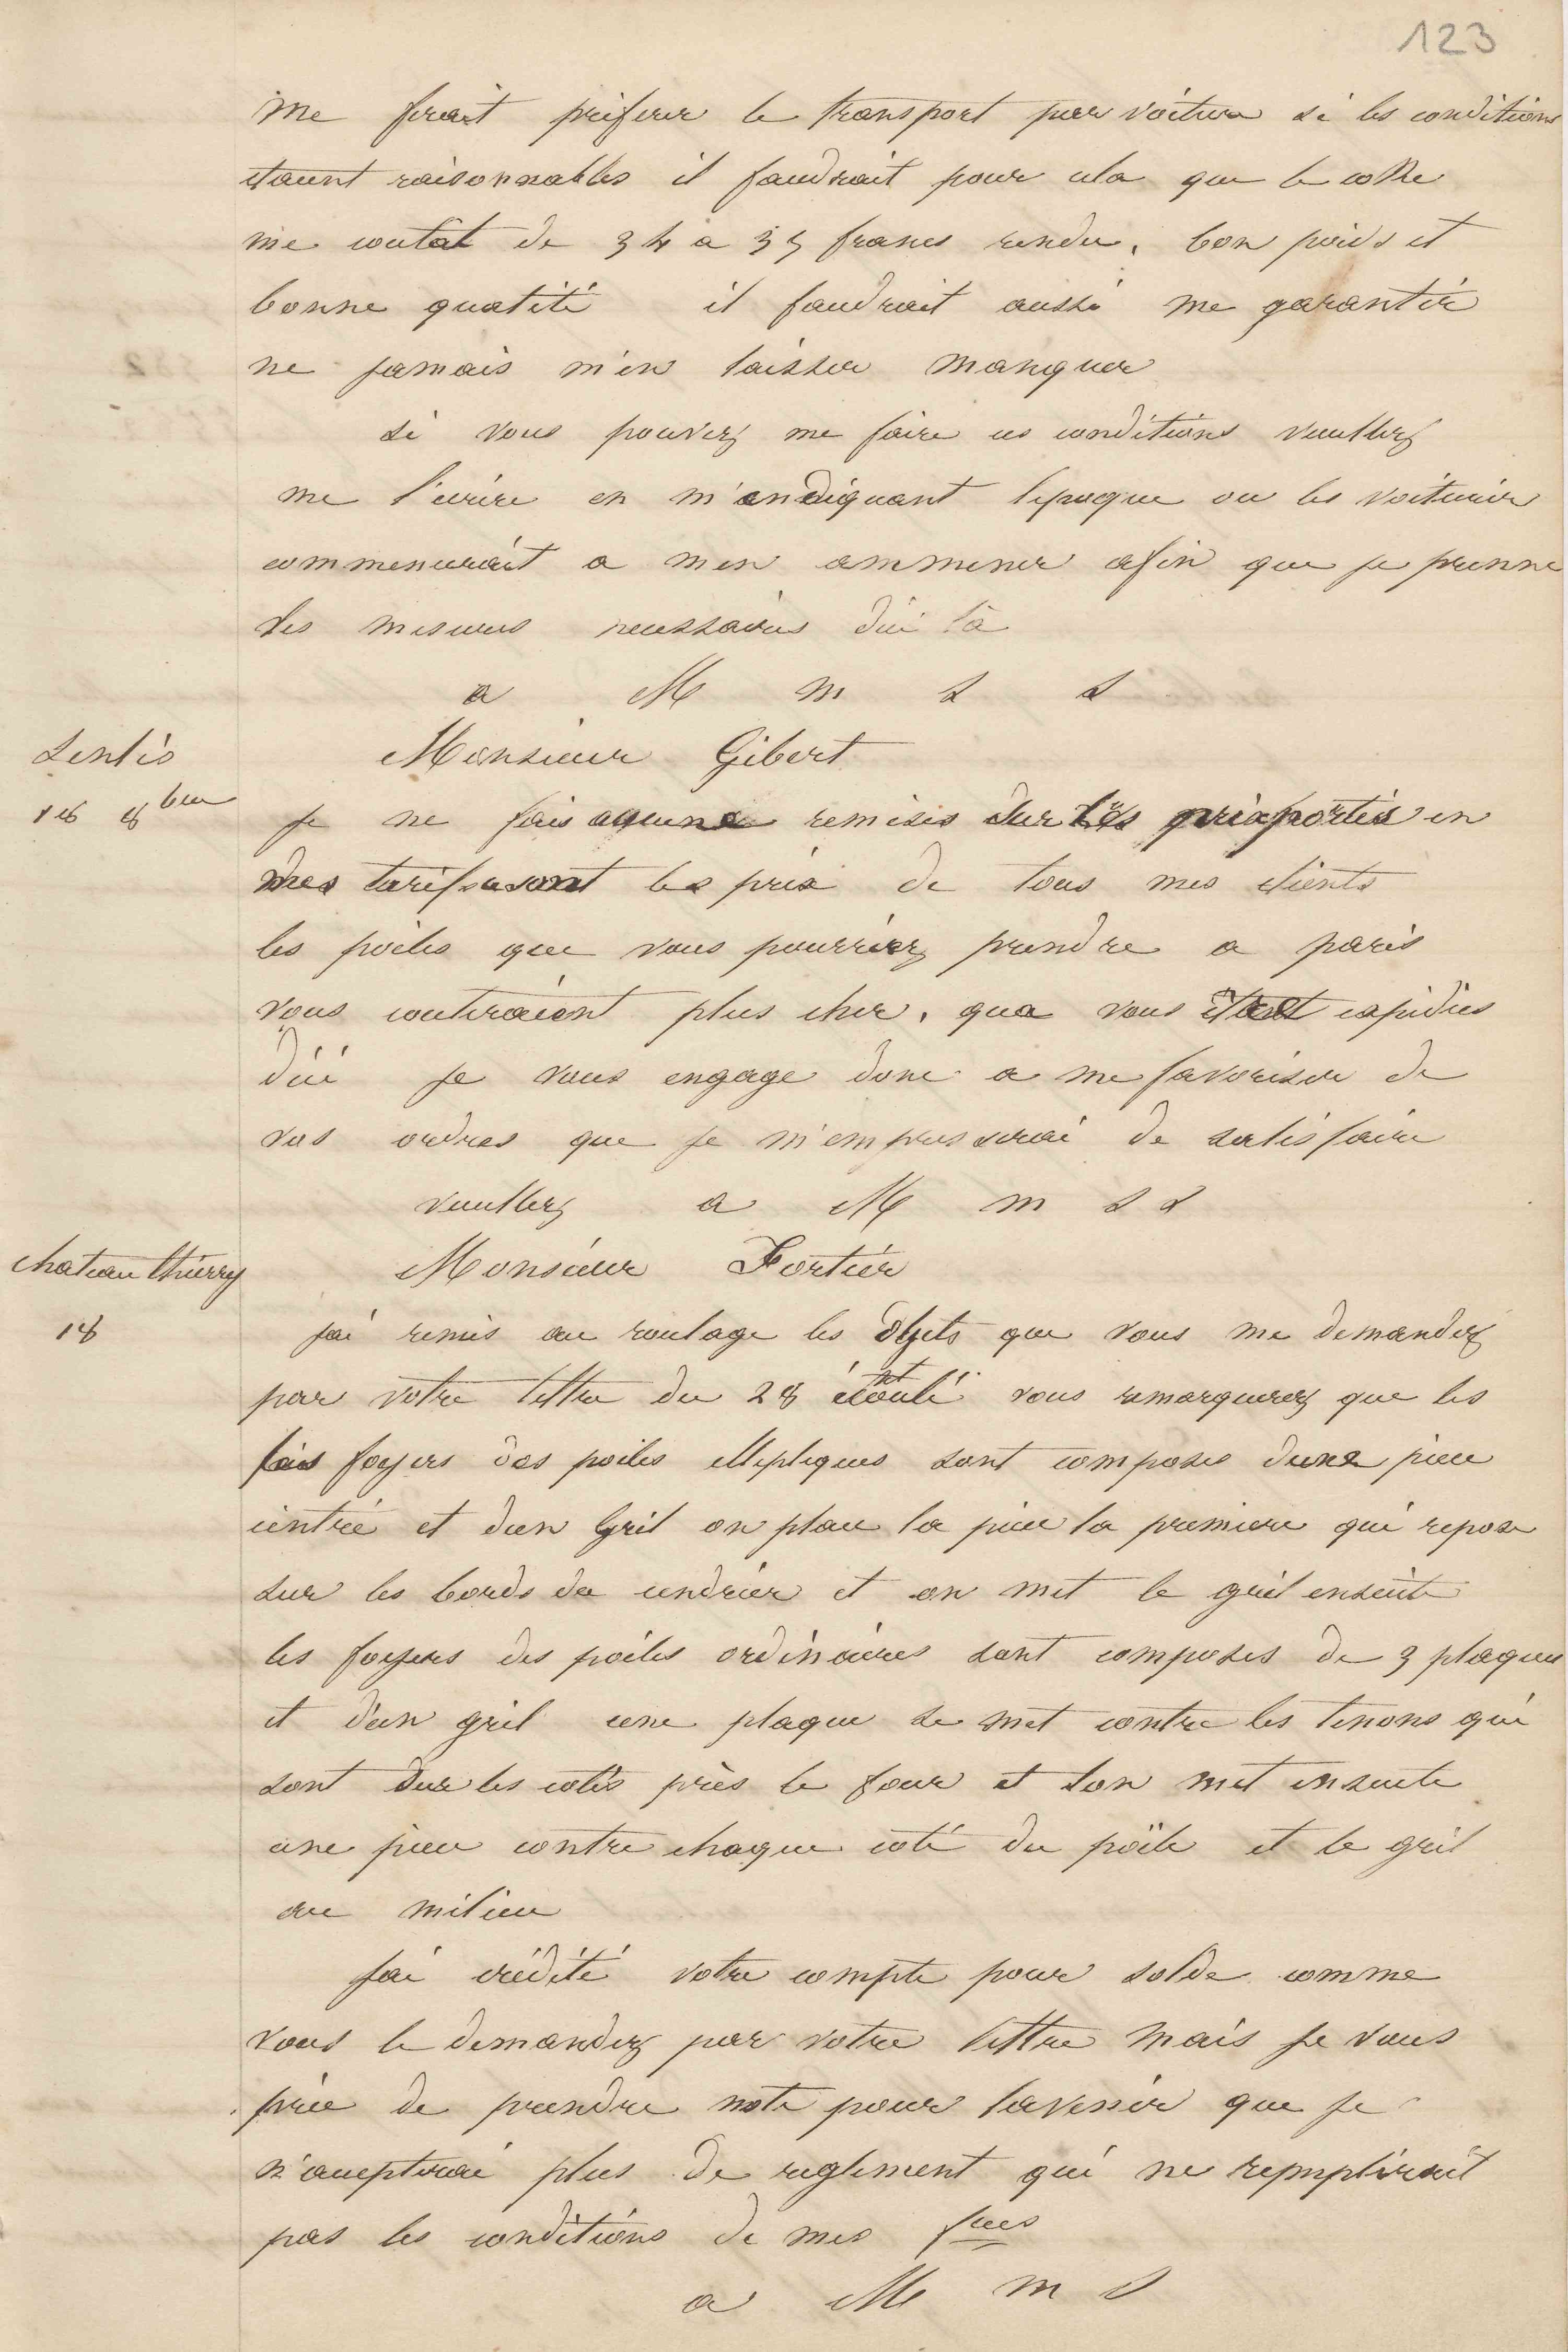 123
me ferait preferer le transport par voiture si les conditions
etaient raisonnables il faudrait pour cela que le coke
me coutat de 34 a 35 francs rendu, bon poids et
bonne qualité il faudrait aussi me garantir
ne jamais m'en laisser manquer
si vous pouvez me faire ces conditions veuillez
me l'ecrire en m'endiquant lepoque ou les voiturier
commencerait a men ammener afin que je prenne
des mesures necessaires d'ici là
a M m s s
Senlis
Monsieur Gibert
18 8bre
je ne fais aqune remises sur les prix portés en
mes tarifs ce sont les prix de tous mes clients
les poëles que vous pourriez prendre a paris
vous couteraient plus cher, qua vous etant expidiés
d'ici je vous engage donc a me favoriser de
vos ordres que je m'empresserai de satisfaire
veuillez a M m s s
chateau thierry
Monsieur Fortier
18
jai remis au roulage les objets que vous me demandez
par votre lettre du 28 écoulé vous remarquerez que les
foyers des poeles elleptiques sont composes dune piece
cintrée et dun Gril on place la piece la premiere qui repose
sur les bords du cendrier et on met le gril ensuite
les foyers des poëles ordinaires sont composes de 3 plaques
et d'un gril une plaque se met contre les tenons qui
sont sur les cotés près le four et lon met ensuite
une piece contre chaque coté du poële et le gril
au milieu
jai crédité votre compte pour solde comme
vous le demandez par votre lettre mais je vous
prie de prendre note pour lavenir que je
n'accepterai plus de reglement qui ne remplirait
pas les conditions de mes fces
a M m s